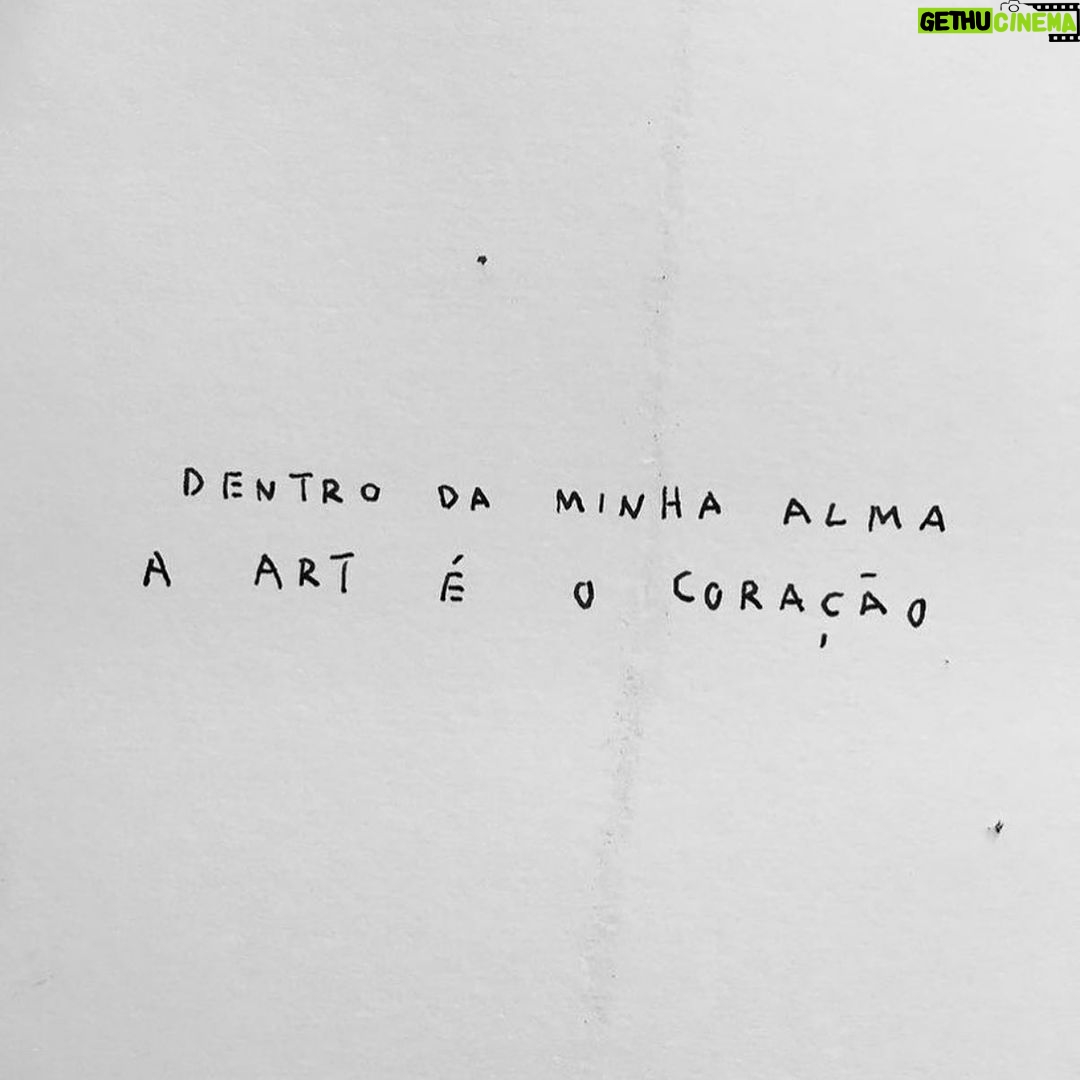 GETHUCINEMA
DENTRO DA MINHA ALMA
A ART É O CORAÇÃO